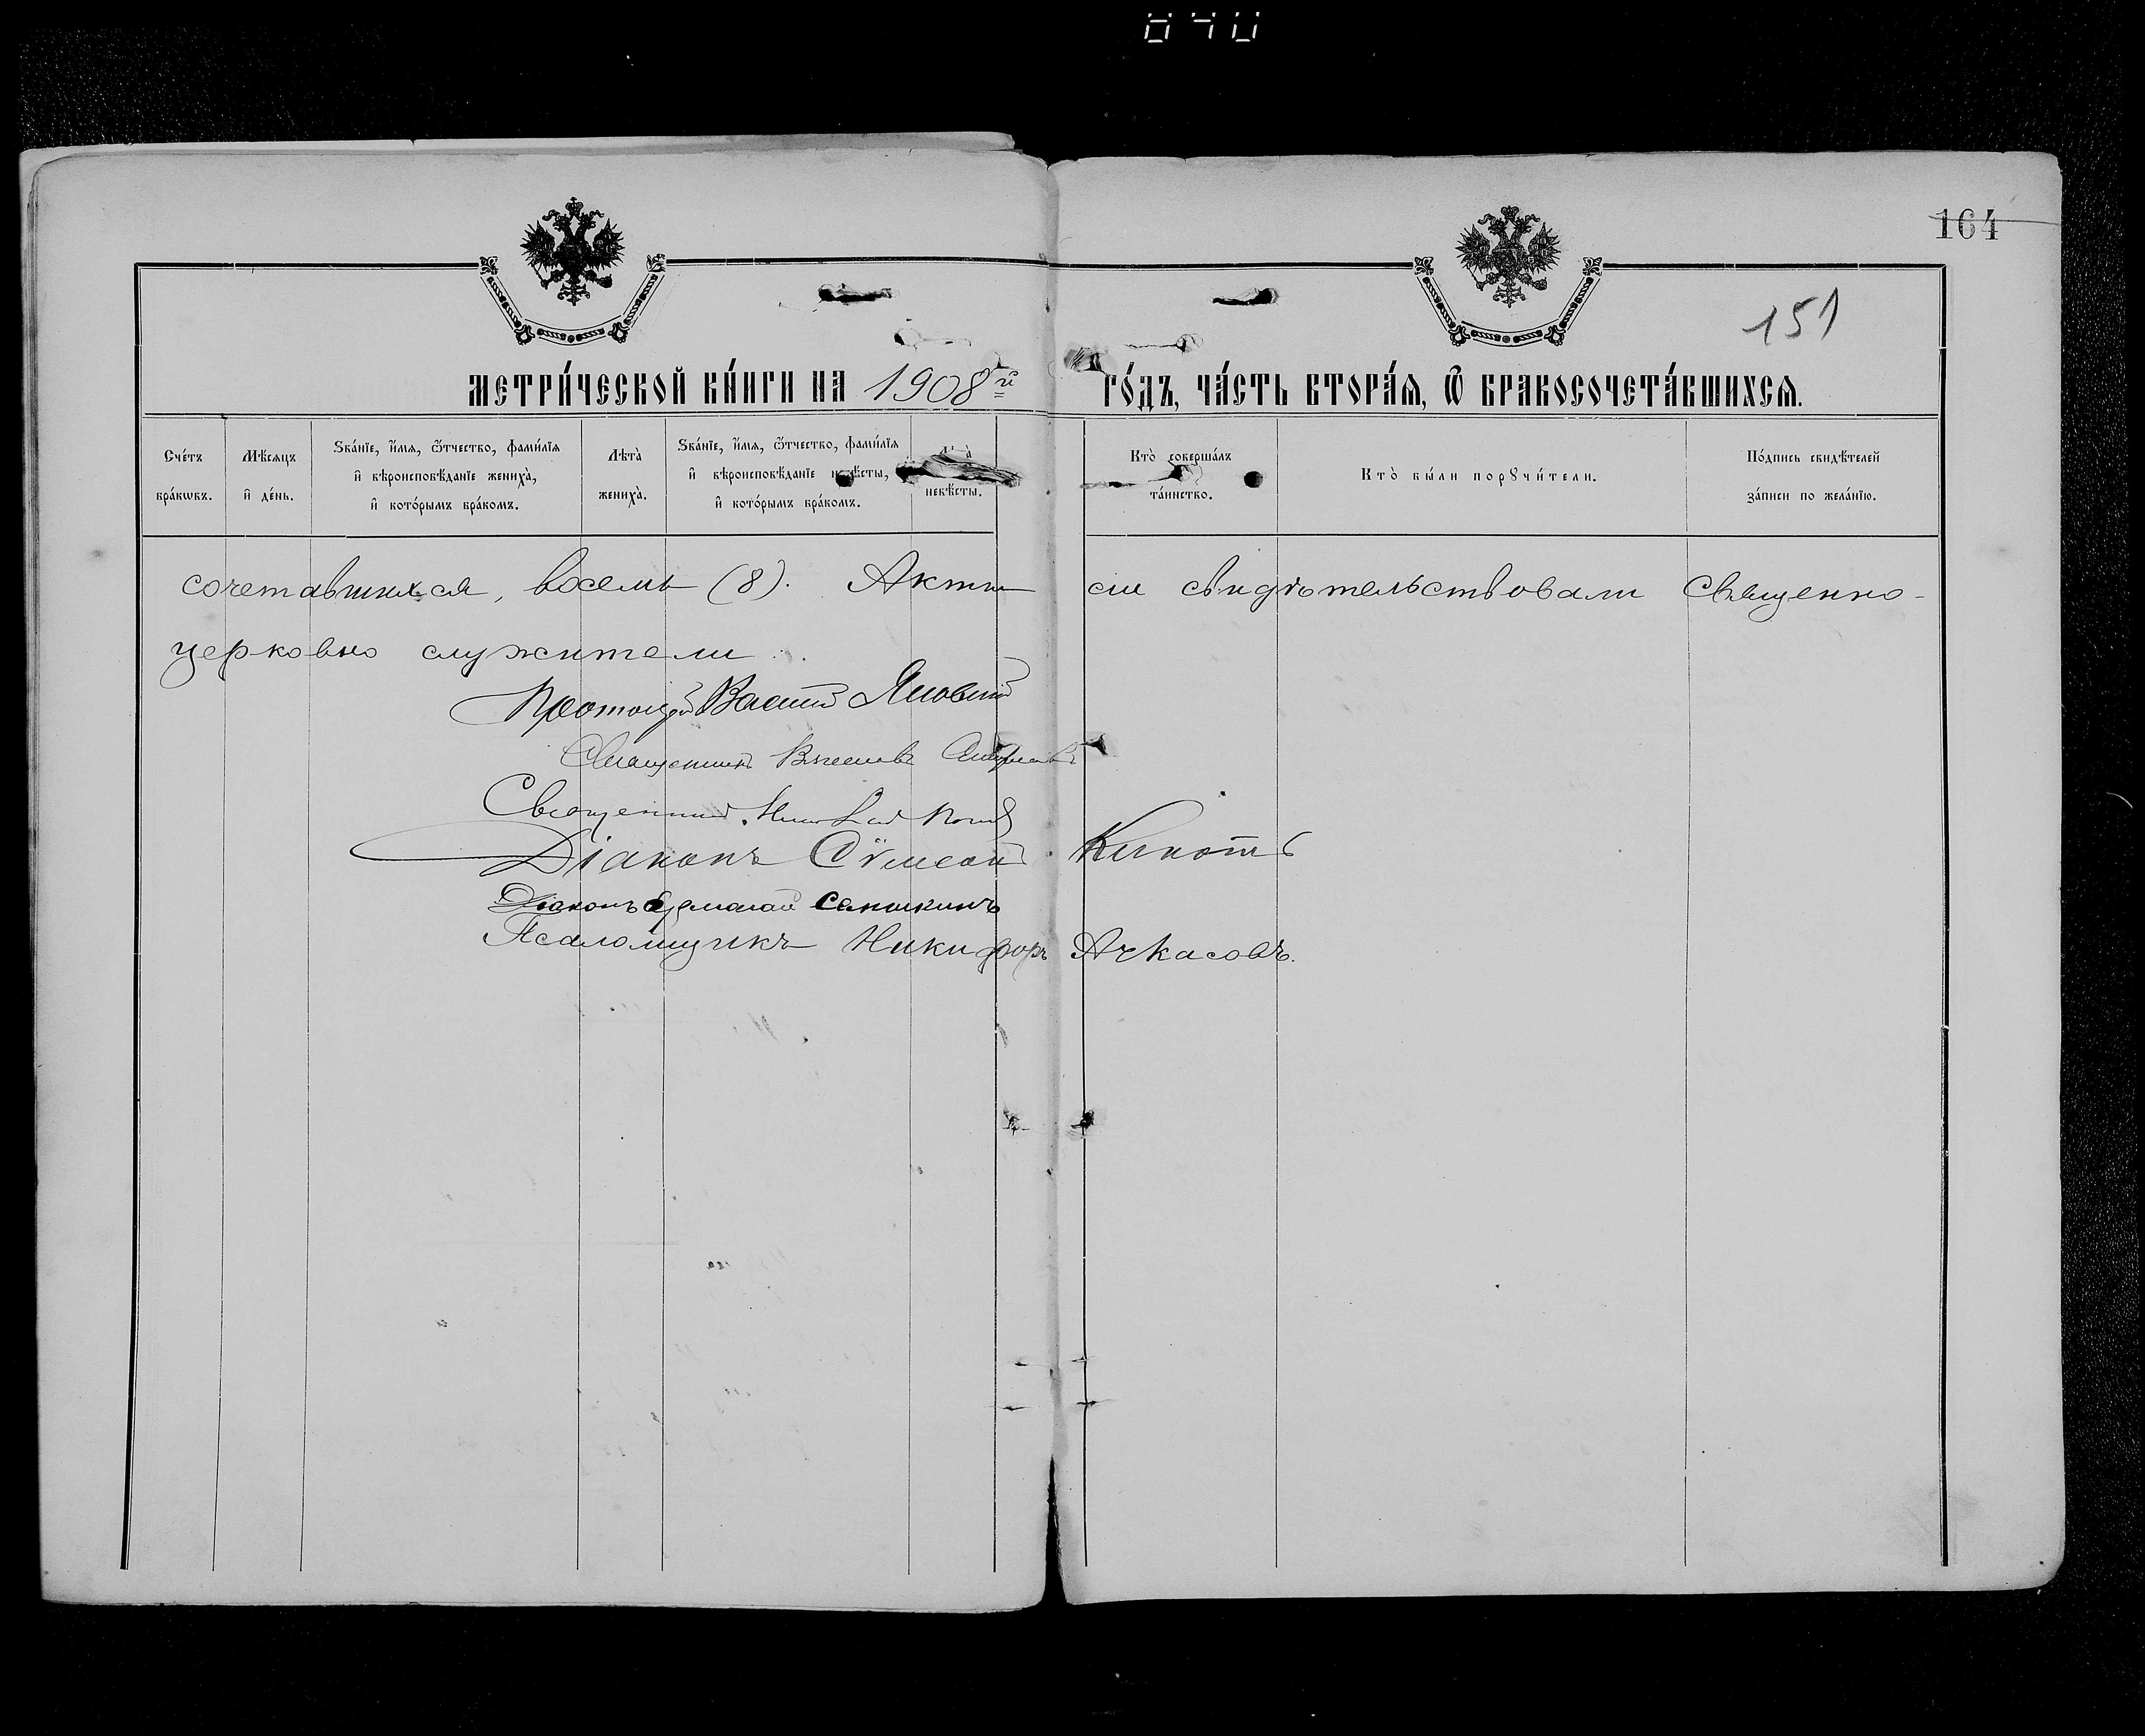 164
151
МЕТРИ́ЧЕСКОЙ КНИ́ГИ НА 1908й ГО́ДЪ, ЧА́СТЬ ВТОРА́Я, Ѽ БРАКОСОЧЕТА́ВШИХСЯ.
Сче́тъ бра́кѡвъ.
Мѣ́сяцъ и҆ де́нь.
Ѕва́нїе, и҆́мя, ѻ҆́тчество, фами́лїя и҆ вѣроисповѣ́данїе жениха̀, и҆ кото́рымъ бра́комъ.
Лѣта̀ жениха̀.
Ѕва́нїе, и҆́мя, ѻ҆́тчество, фами́лїя и҆ вѣроисповѣ́данїе невѣ́сты, и҆ кото́рымъ бра́комъ.
невѣ́сты.
Кто̀ соверша́лъ та́инство.
Кто̀ бы́ли порꙋчи́тели.
По́дпись свидѣ́телей за́писи по жела́нїю.
сочетавшихся, восемь (8). Акты сіи свидѣтельствовали Священно-
церковно служители
Протоіерей Василій
Священникъ
Священникъ Николай Попов
Діаконъ Сѵмеонъ
Діаконъ
Псаломщикъ Никифоръ Ачкасовъ.